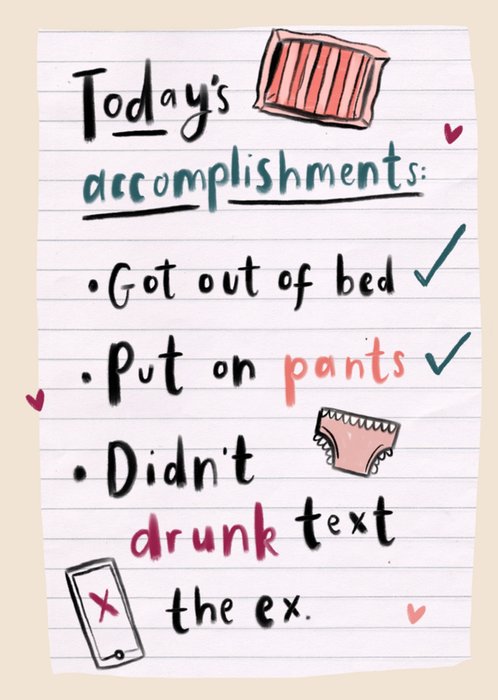 Today's
accomplishments:
• Got out of bed ✓
• Put on pants ✓
• Didn't
drunk text
the ex.